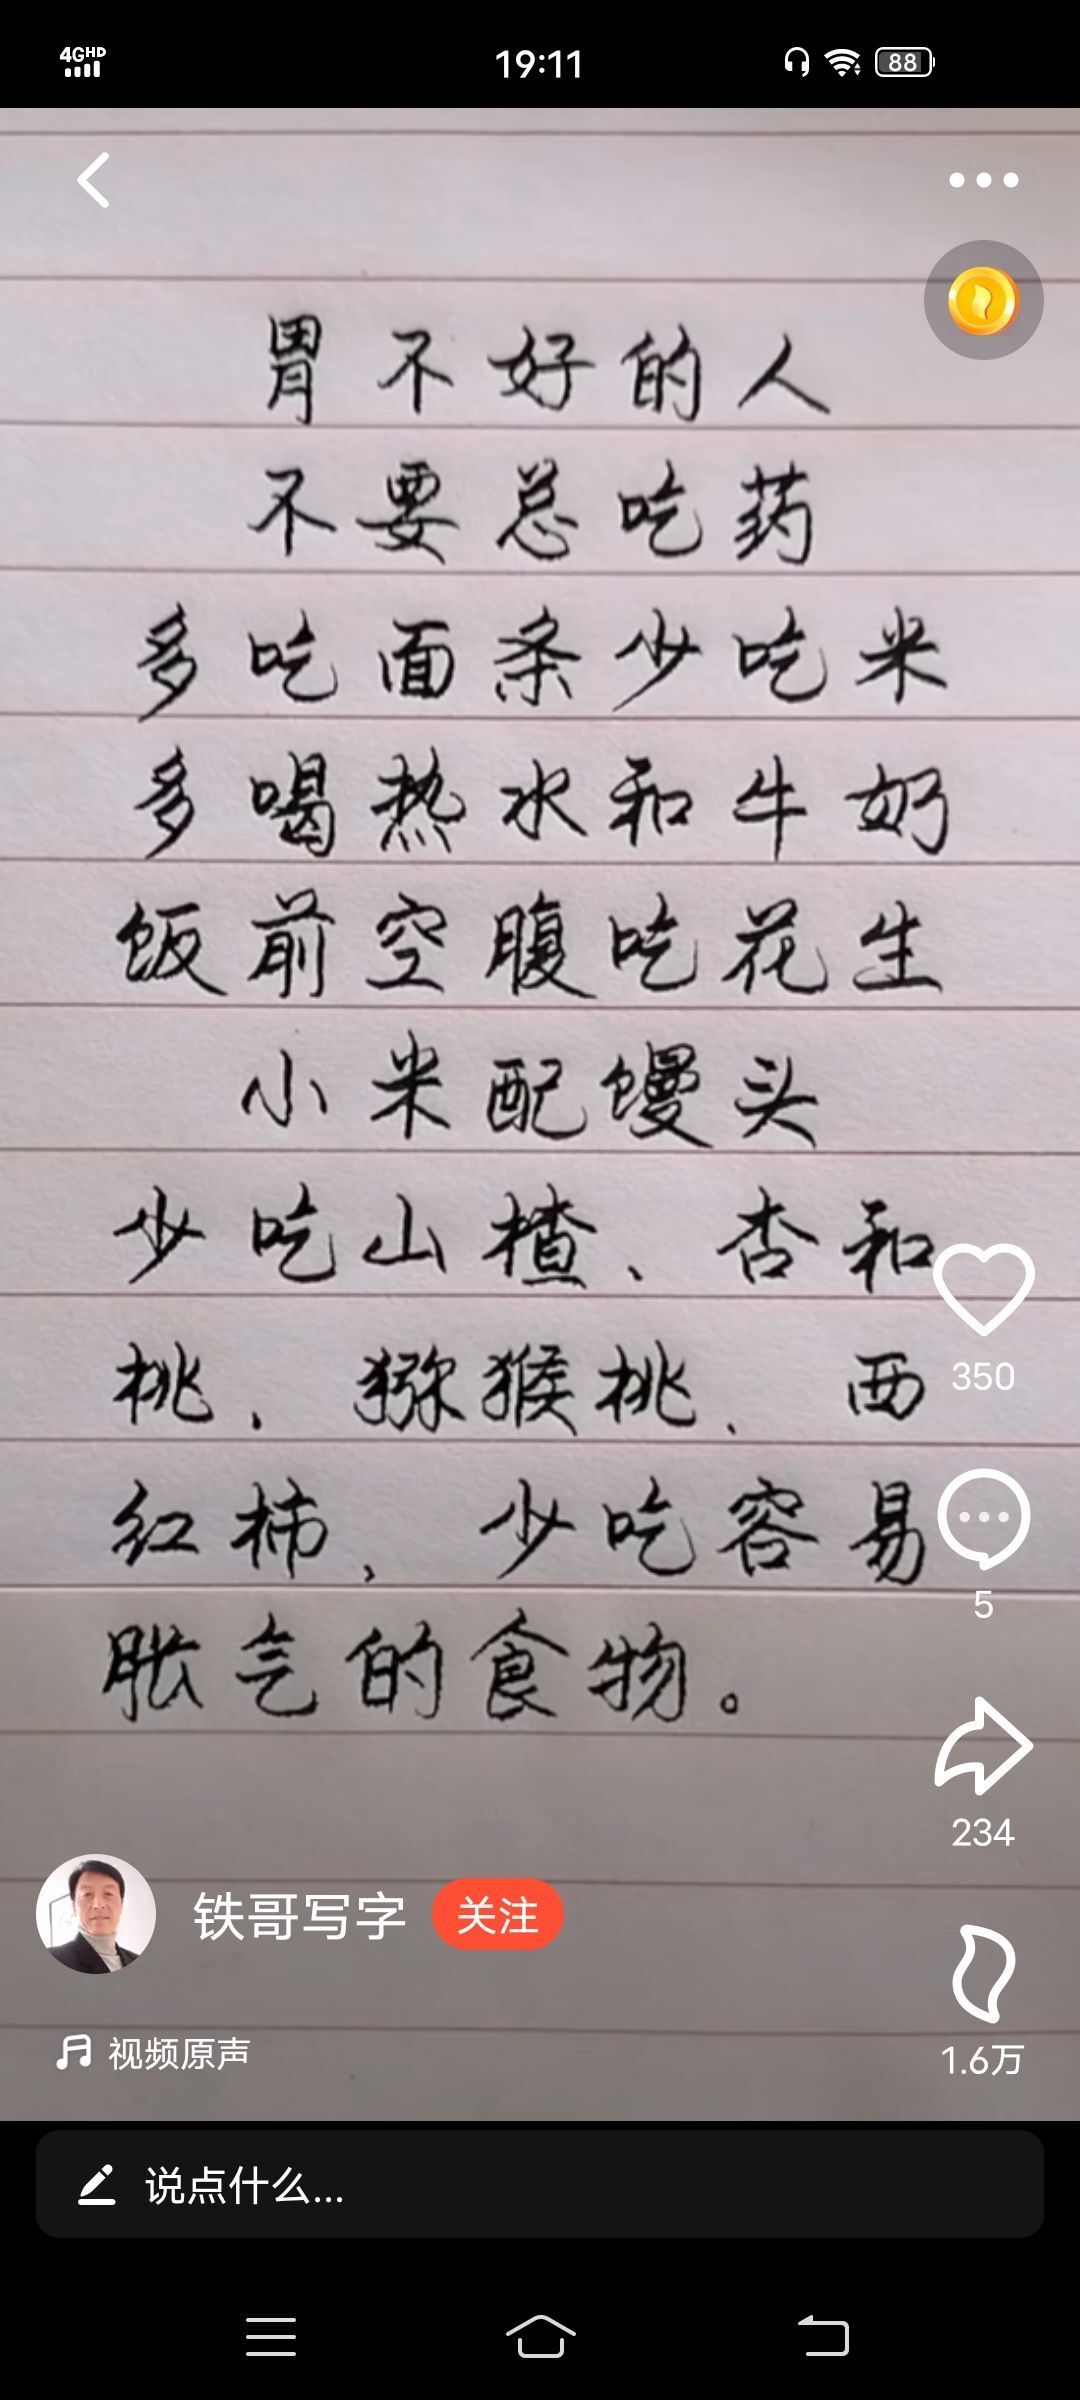 4GHD
19:11
88
胃不好的人
不要总吃药
多吃面条少吃米
多喝热水和牛奶
饭前空腹吃花生
小米配馒头
少吃山楂、杏和
桃、猕猴桃、西
红柿，少吃容易
胀气的食物。
350
5
234
铁哥写字
关注
1.6万
视频原声
说点什么...